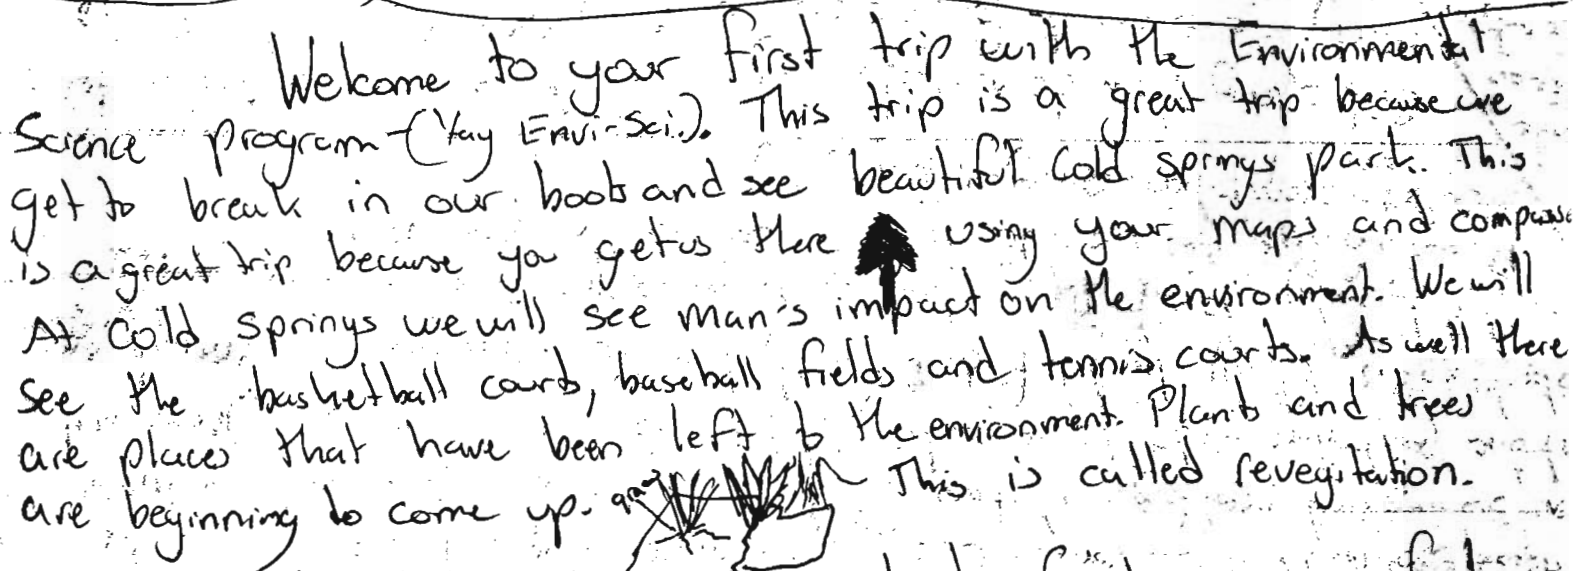 Welcome to your first trip with the Environmental
Science program - (Yay Envi-Sci.). This trip is a great trip because we
get to break in our boots and see beautiful Cold Springs park. This
is a great trip because you get us there using your maps and compass
At Cold Springs we will see man's impact on the environment. We will
see the basketball courts, baseball fields and tennis courts. As well there
are places that have been left to the environment. Plants and trees
are beginning to come up. grass This is called revegitation.